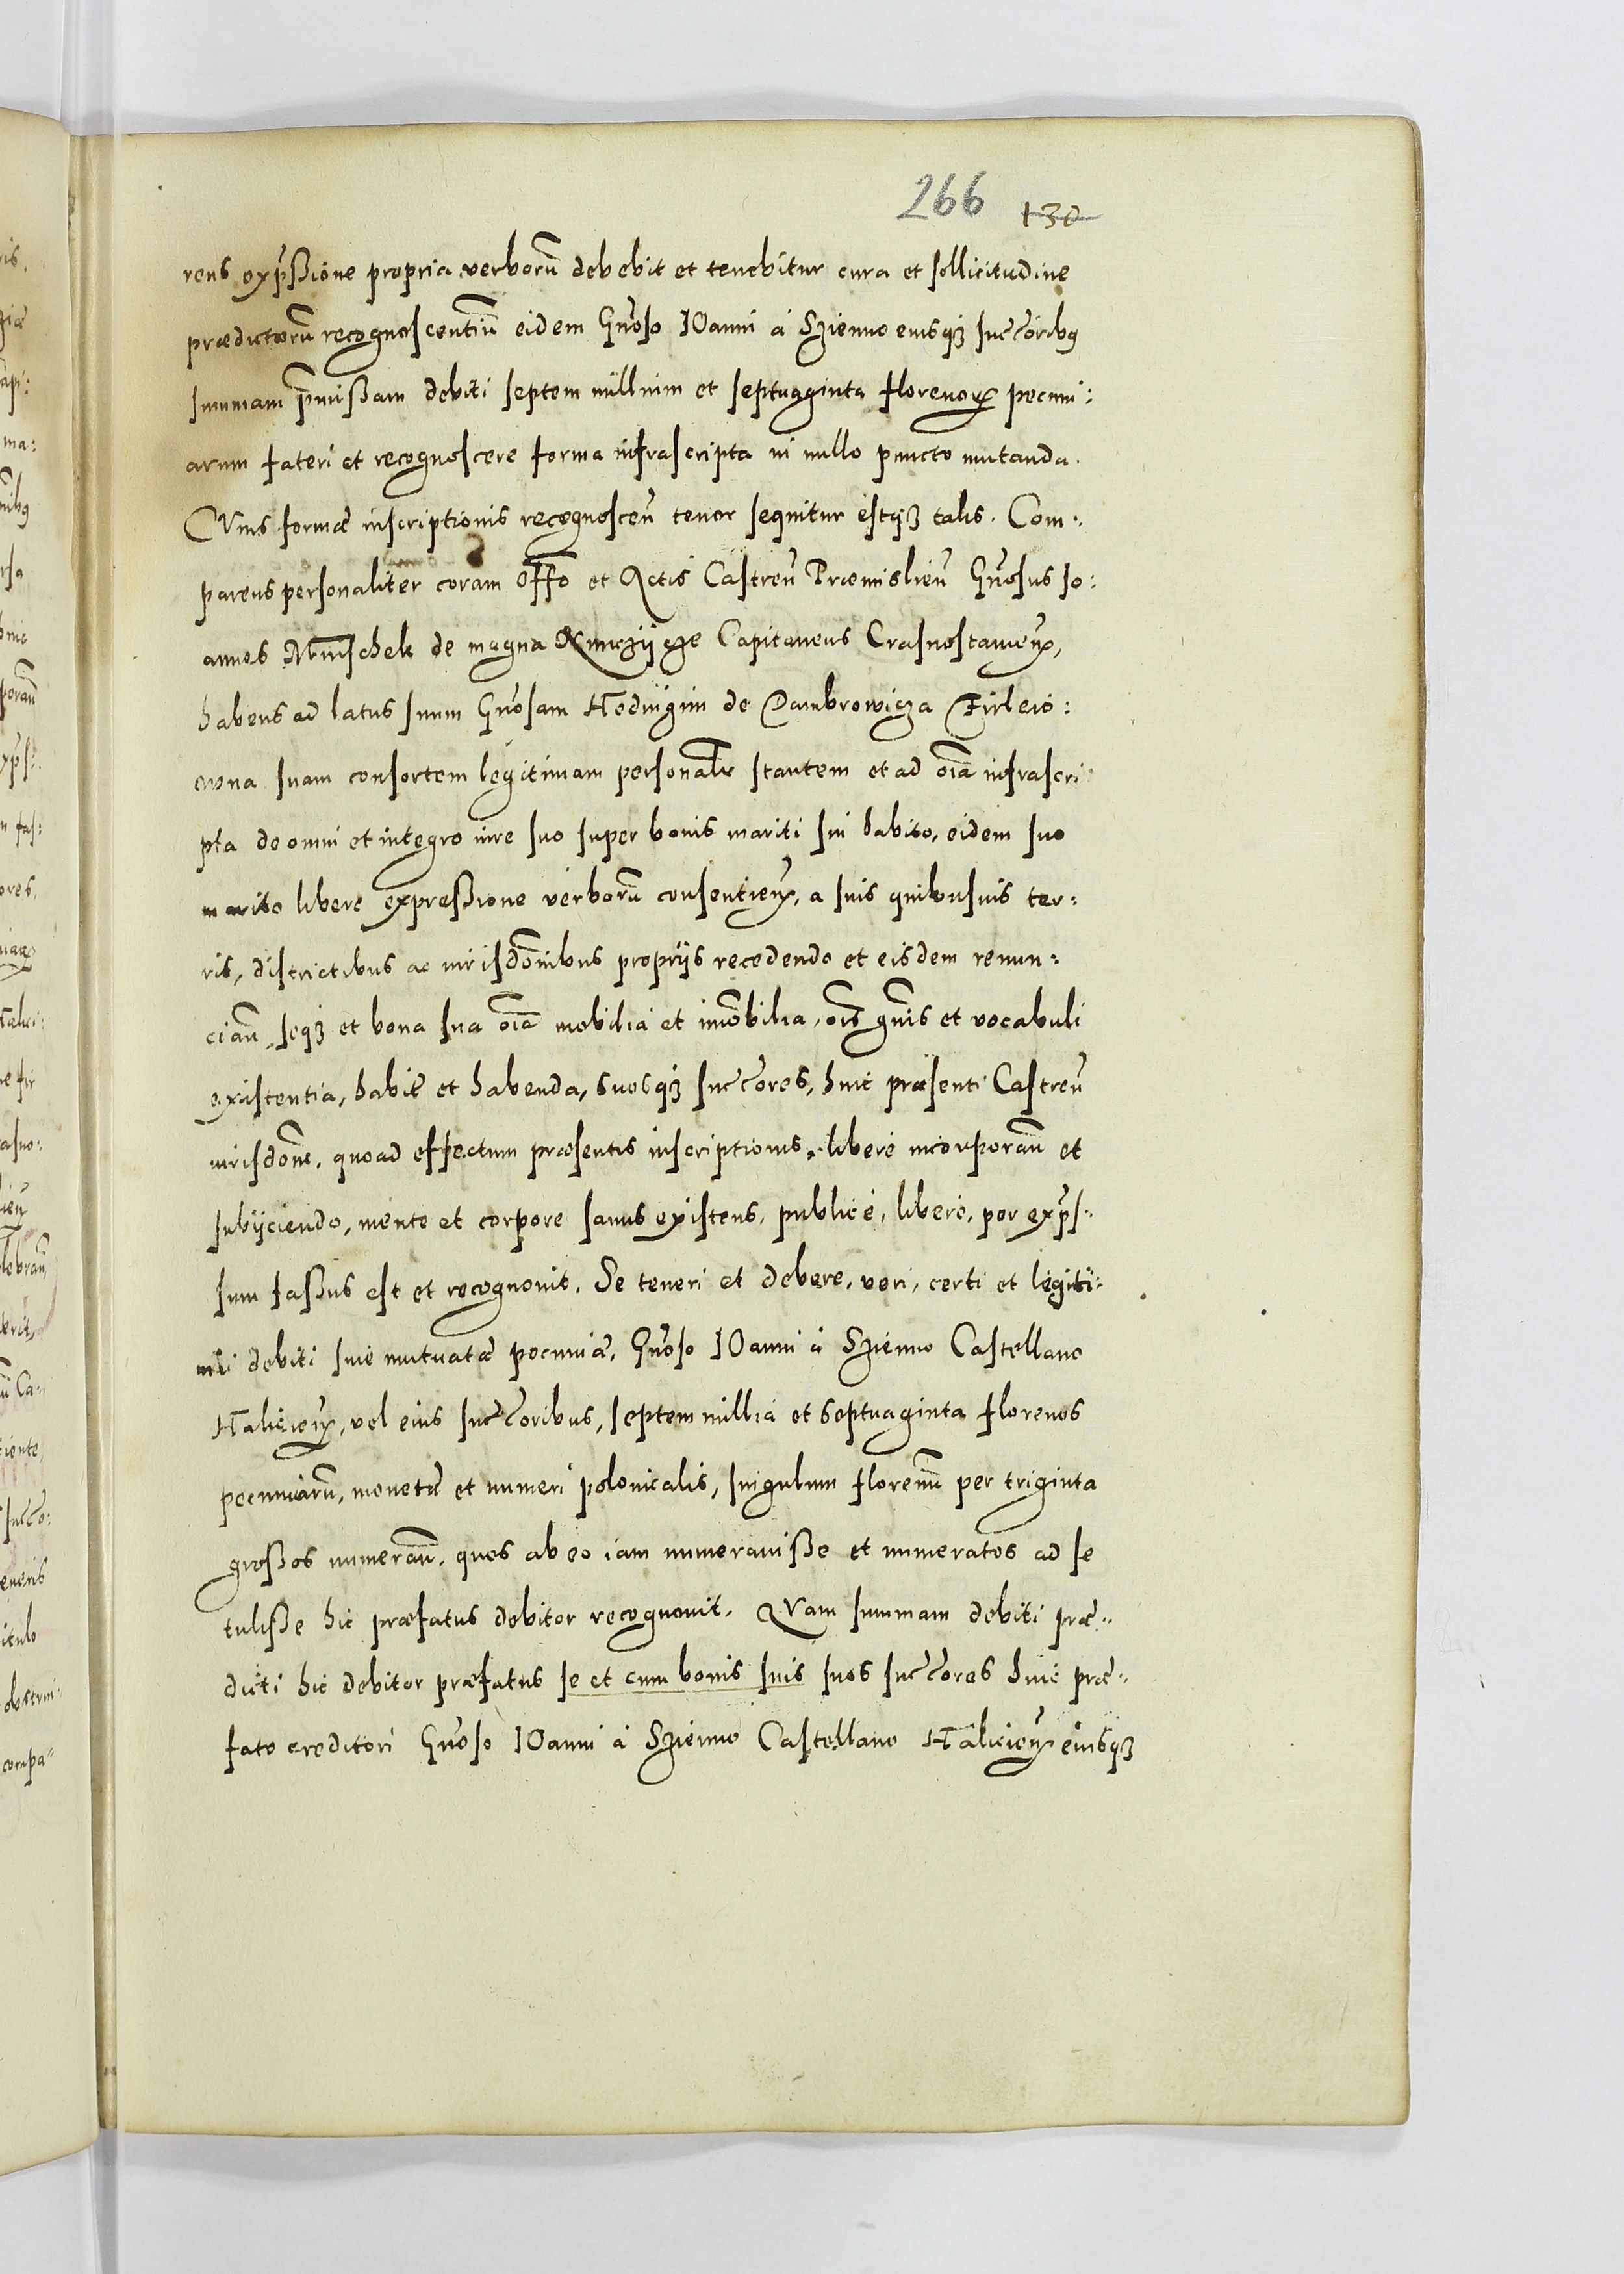 266 130
rens exp̃ssione propria verborũ debebit et tenebitur cura et sollicitudine
prædictorũ recognoscentiũ eidem Gñoso IOanni á Szienno eiusq₃ succ̃oribꝯ
summam p̃missam debiti septem millium et septuaginta florenoꝝ pecuni:
arum fateri et recognoscere forma infrascripta in nullo puncto mutanda.
CVius formæ inscriptionis recognosceñ tenor sequitur estq₃ talis. Com:
parens personaliter coram Offo et Actis Castreñ Præmislieñ Gñosus Io:
annes Mnischek de magna Kunczijcze Capitaneus Crasnostavieñ,
habens ad latus suum Gñosam Hedvigim de Dambrowicza Firleio:
wna suam consortem legitimam personalr̃ stantem et ad oĩa infrascri
pta de omni et integro iure suo super bonis mariti sui habito, eidem suo
marito libere expressione verborũ consentieñ, a suis quibusuis ter:
ris, districtibus ac iurisdõnibus proprijs recedendo et eisdem renun:
ciañ, seq₃ et bona sua oĩa mobilia et imõbilia, oĩs gñis et vocabuli
existentia, habit̃ et habenda, suosq₃ succ̃ores, huic præsenti Castreñ
iurisdõni, quoad effectum præsentis inscriptionis, libere incorporañ et
subijciendo, mente et corpore sanus existens, publicé, liberé, per exp̃s:
sum fassus est et recognouit. Se teneri et debere, veri, certi et legiti:
mi debiti siue mutuatæ pecuniæ, Gñoso IOanni á Szienno Castellano
Halicieñ, vel eius succ̃oribus, septem millia et septuaginta florenos
pecuniarũ, monetæ et numeri polonicalis, singulum florenũ per triginta
grossos numerañ, quos ab eo iam numeravisse et numeratos ad se
tulisse hic præfatus debitor recognouit. QVam summam debiti præ:
dicti hic debitor præfatus se et cum bonis suis suos succ̃ores huic præ:
fato creditori Gñoso IOanni á Szienno Castellano Halicieñ eiusq₃